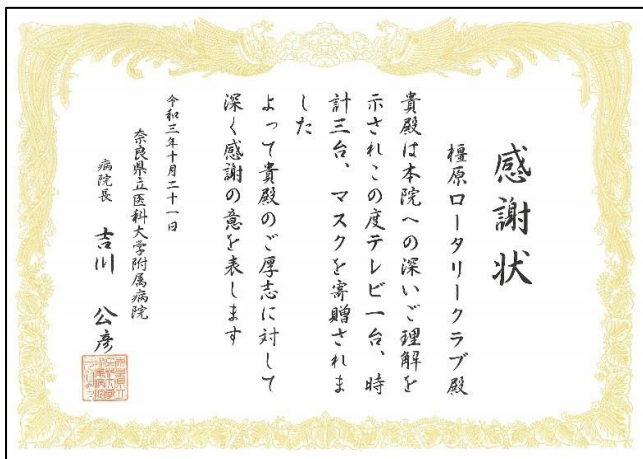 感謝状
橿原ロータリークラブ殿
貴殿は本院への深いご理解を
示されこの度テレビ一台、時
計三台、マスクを寄贈されま
した
よって貴殿のご厚志に対して
深く感謝の意を表します
令和三年十月二十一日
奈良県立医科大学附属病院
病院長 吉川 公彦